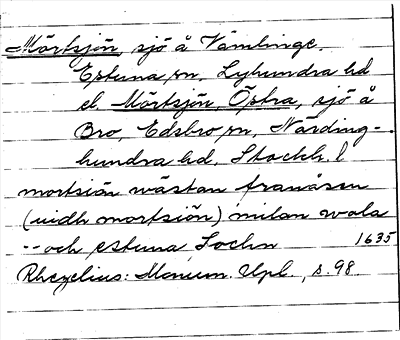 Mörtsjön, sjö å Vämlinge,
Estuna sn, Lyhundra hd
el. Mörtsjön, Östra, sjö å
Bro, Edsbro sn, Närding-
hundra hd, Stockh. l
mortsiön wästan franåsen
(widh mortsiön) milan wala
-- och estuna Sochn 1635
Rhezelius: Monum. Upl., s. 98.